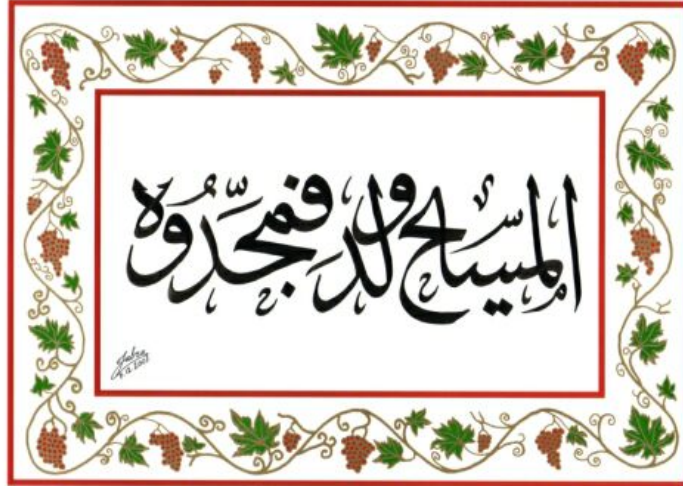 المسيح ولد فمجّدوه